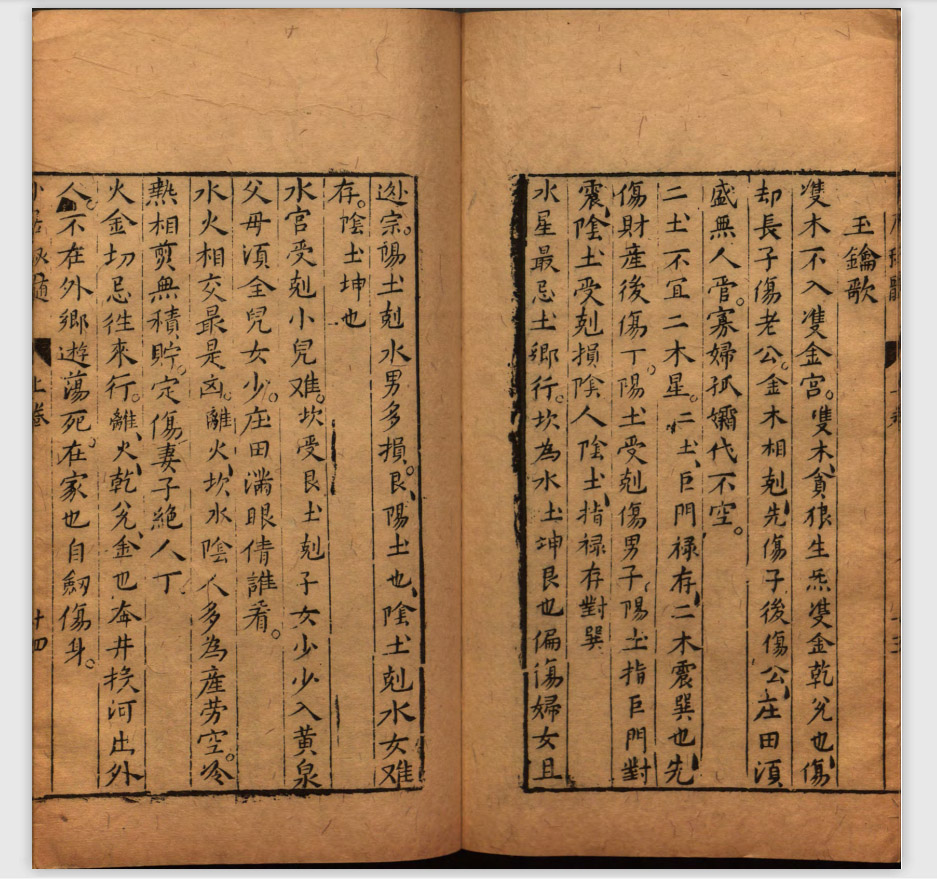 玉鑰歌
雙木不入雙金宮。雙木貪狼生炁雙金乾兌也傷
却長子傷老公。金木相剋先傷子後傷公庄田須
盛無人管。寡婦孤孀代不空。
二土不宜二木星。二土巨門禄存二木震巽也先
傷財產後傷丁。陽土受剋傷男子陽土指巨門對
震陰土受剋損陰人陰土指禄存對巽
水星最忌土鄉行。坎為水土坤艮也偏傷婦女且
迯宗。陽土剋水男多損。艮陽土也陰土剋水女难
存。陰土坤也
水宮受剋小兒难。坎受艮土剋子女少少入黄泉
父母須全兒女少。庄田滿眼倩誰看。
水火相交最是凶。離火坎水陰人多為産劳空。冷
熱相剪無積貯。定傷妻子絶人丁
火金切忌徃來行。離火乾兌金也奔井投河出外
人。不在外鄉遊蕩死。在家也自刎傷身。
上卷
十四